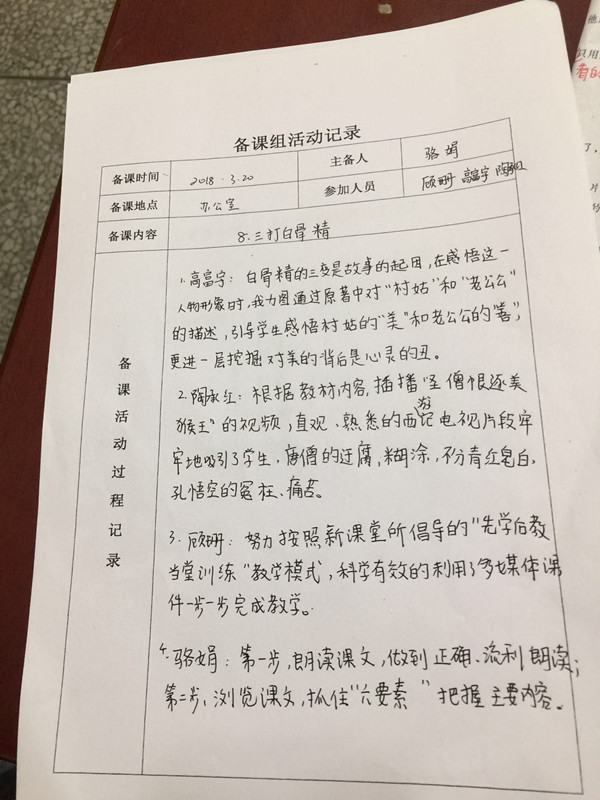 备课组活动记录
备课时间 2018.3.20 主备人 骆娟
备课地点 办公室 参加人员 顾珊 高富宇 陶永红
备课内容 8.三打白骨精
备课活动过程记录
1.高富宇：白骨精的三变是故事的起因，在感悟这一
人物形象时，我力图通过原著中对“村姑”和“老公公”
的描述，引导学生感悟村姑的“美”和老公公的“善”，
更进一层挖掘对美的背后是心灵的丑。
2.陶永红：根据教材内容，插播“圣僧恨逐美
猴王”的视频，直观、熟悉的西游记电视片段牢
牢地吸引了学生、唐僧的迂腐，糊涂，不分青红皂白，
孔悟空的冤枉、痛苦。
3.顾珊：努力按照新课堂所倡导的“先学后教
当堂训练”教学模式，科学有效的利用了多媒体课
件一步一步完成教学。
4.骆娟：第一步，朗读课文，做到正确、流利朗读；
第二步、浏览课文，抓住“六要素”把握主要内容。
只用